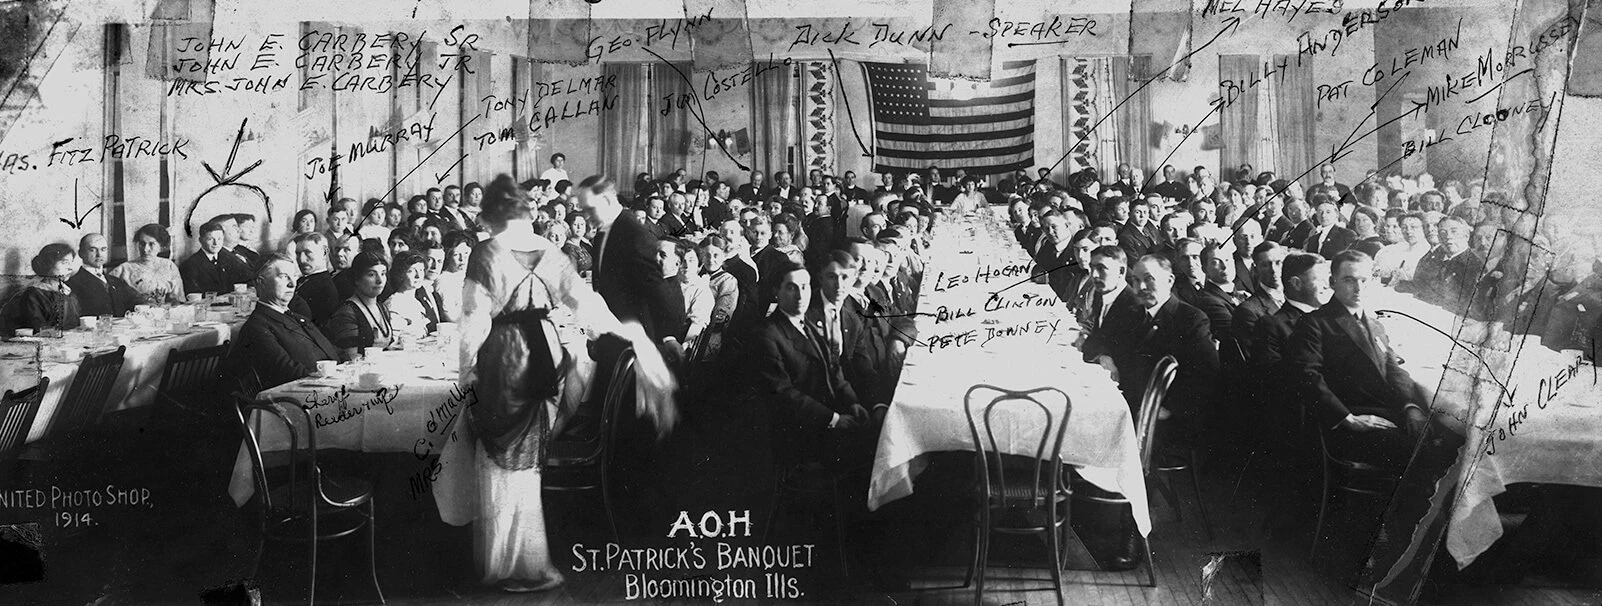 JOHN E. CARBERY SR
JOHN E. CARBERY JR
MRS. JOHN E. CARBERY
GEO. FLYNN
DICK DUNN - SPEAKER
MEL HAYES
BILLY ANDERSON
PAT COLEMAN
MIKE MORRISSEY
BILL CLOONEY
TONY DELMAR
TOM CALLAN
JIM COSTELLO
JOE MURRAY
FITZPATRICK
LEO HOGAN
BILL CLINTON
PETE DOWNEY
JOHN CLEARY
Sheriff
Reeder & wife
C. O'Malley
MRS. "
UNITED PHOTO SHOP,
1914.
A.O.H
ST. PATRICK'S BANQUET
Bloomington Ills.